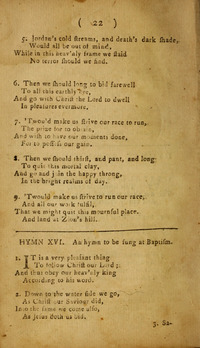 ( 22 )
5. Jordan's cold streams, and death's dark shade,
Would all be out of mind,
While in this heav'nly frame we staid
No terror should we find.
6. Then we should long to bid farewell
To all this earthly
And go with Christ the Lord to dwell
In pleasures evermore.
7. 'Twou'd make us strive our race to run,
The prize for to obtain,
And wish to have our moments done,
For to possess our gain.
8. Then we should thirst, and pant, and long
To quit this mortal clay,
And go and join the happy throng,
In the bright realms of day.
9. 'Twould make us strive to run our race,
And all our work fulfil,
That we might quit this mournful place,
And land at Zion's hill.
HYMN XVI. An hymn to be sung at Baptism.
1. IT is a very pleasant thing
To follow Christ our Lord;
And thus obey our heav'nly king
According to his word.
2. Down to the water side we go,
As Christ our Saviour did,
Into the same we come also,
As Jesus doth us bid.
3. So-